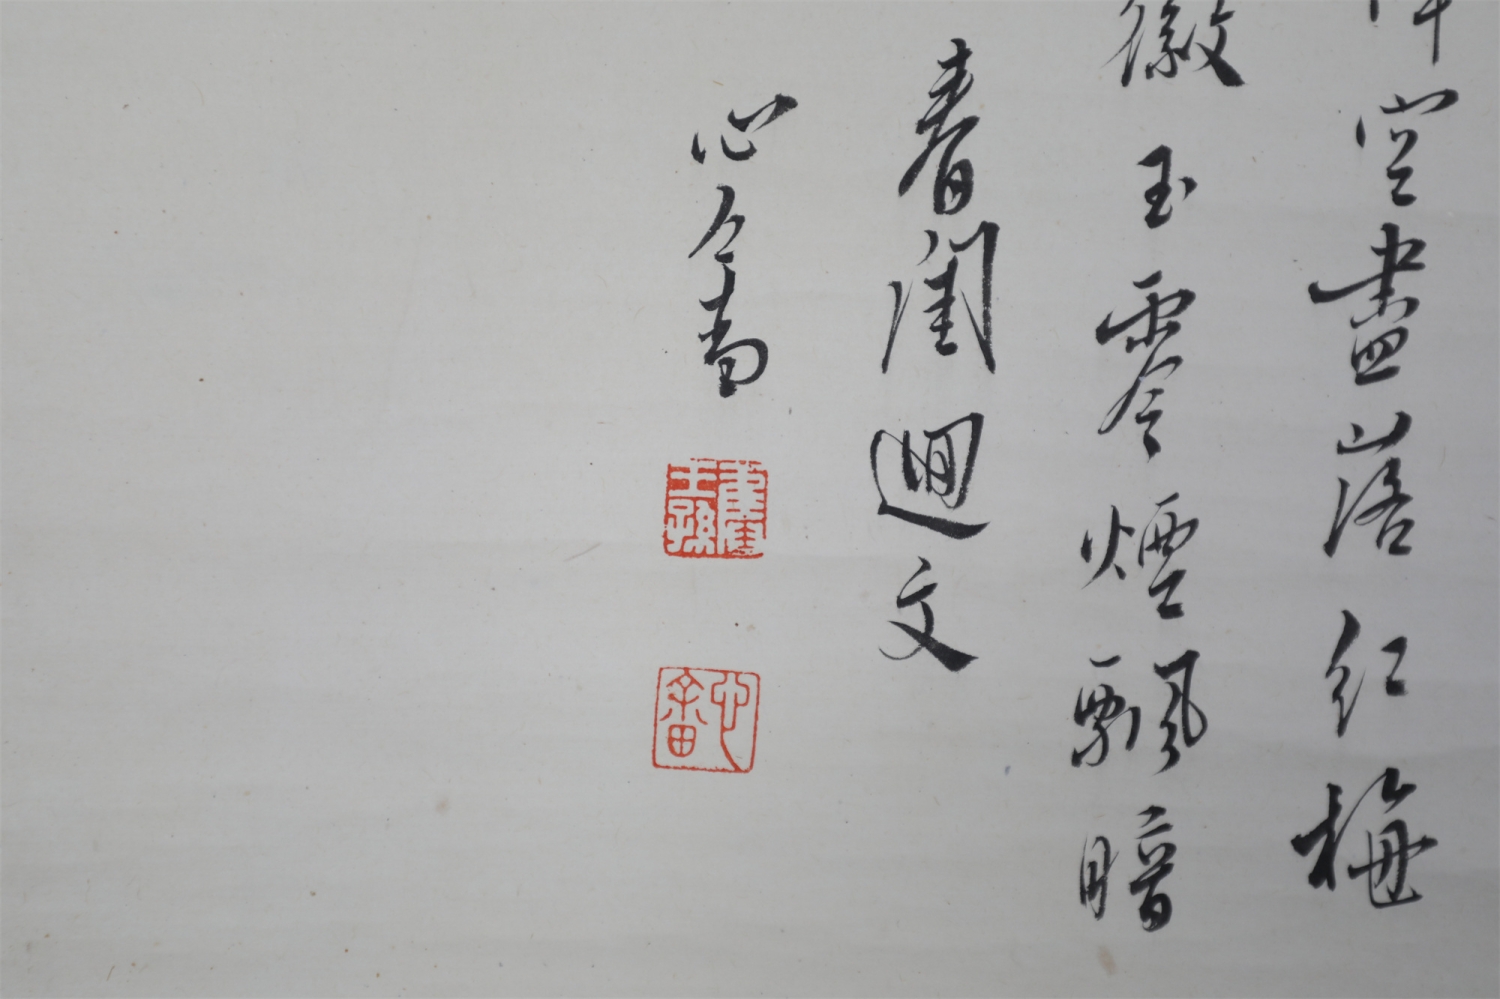 空盡落紅梅
徽玉零煙飄暗
春閨迴文
心畬
舊王孫
心畬